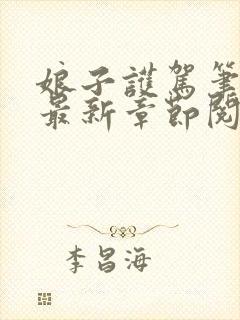 娘子護駕筆
最新章節閱
李昌海